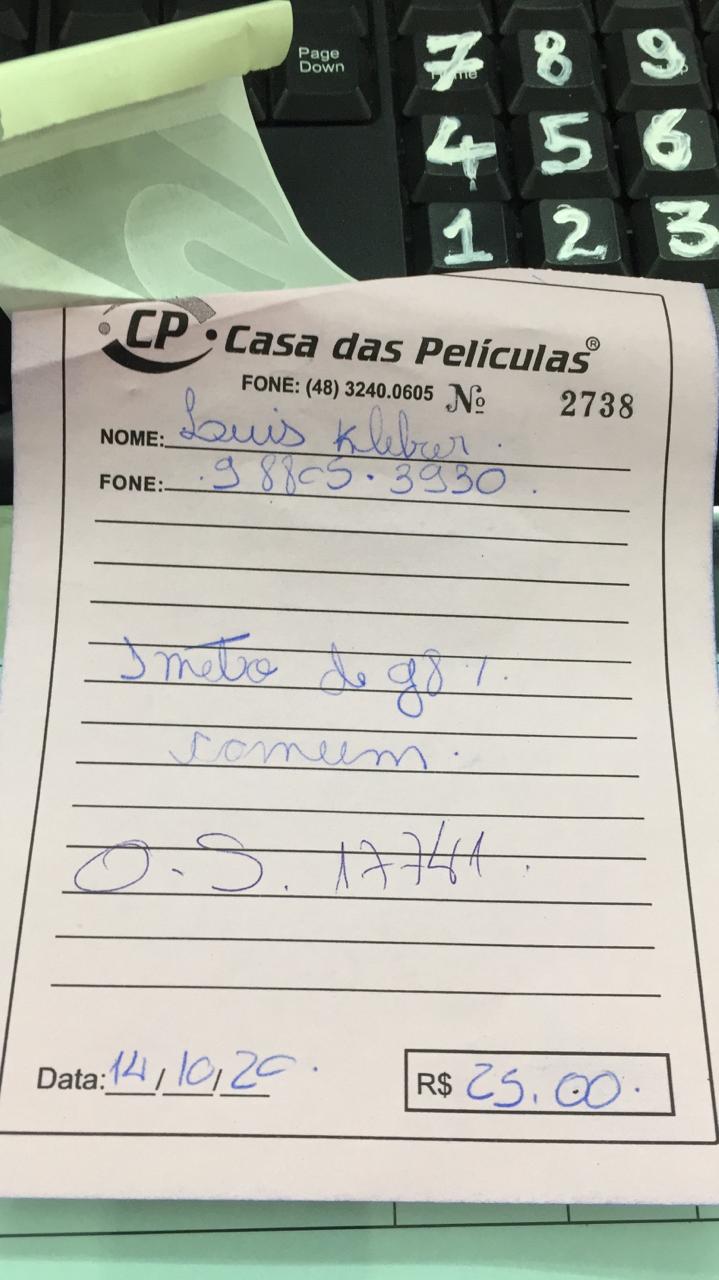 Page
Down
7 8 9
4 5 6
1 2 3
CP • Casa das Películas®
FONE: (48) 3240.0605 Nº 2738
NOME: Louis Kleber.
FONE: 98805.3930.
1 metro de g8%.
comum.
O.S. 17741.
Data: 14/10/20.
R$ 25.00.